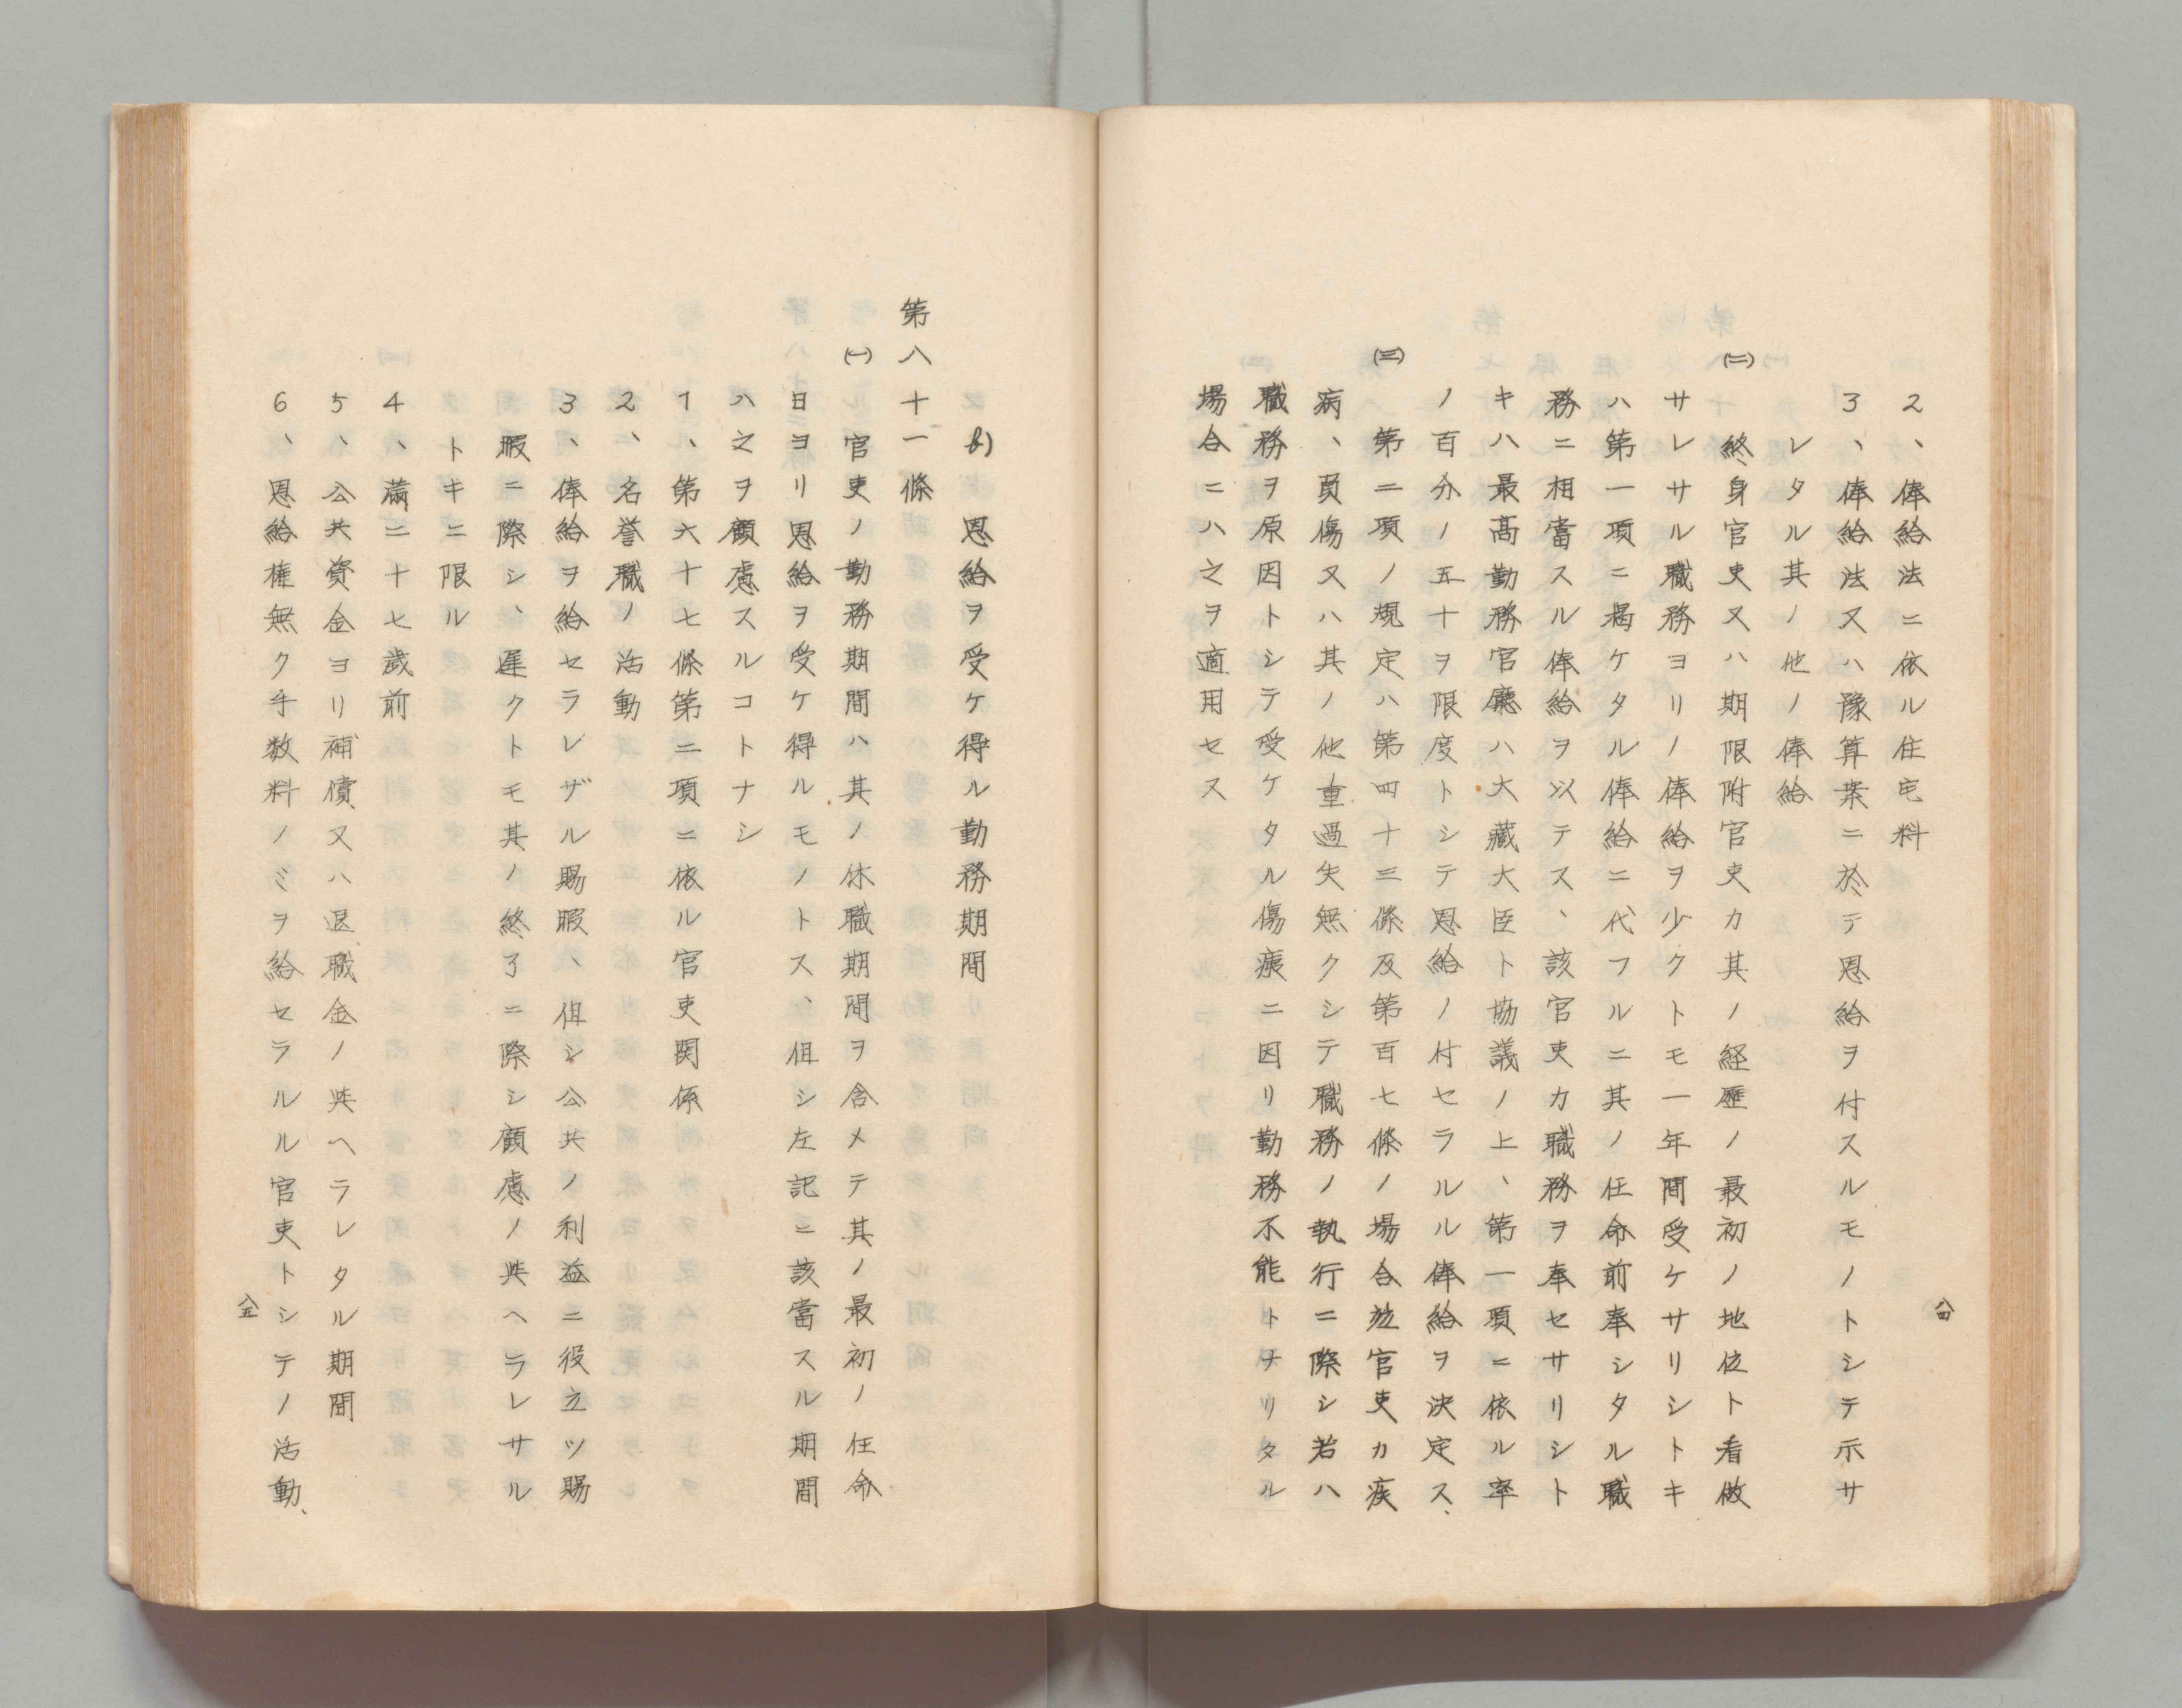 2、俸給法ニ依ル住宅料
3、俸給法又ハ豫算案ニ於テ恩給ヲ付スルモノトシテ示サ
レタル其ノ他ノ俸給
(二) 終身官吏又ハ期限附官吏カ其ノ経歴ノ最初ノ地位ト看做
サレサル職務ヨリノ俸給ヲ少クトモ一年間受ケサリシトキ
ハ第一項ニ揭ケタル俸給ニ代フルニ其ノ任命前奉シタル職
務ニ相當スル俸給ヲ以テス、該官吏カ職務ヲ奉セサリシト
キハ最高勤務官廳ハ大藏大臣ト協議ノ上、第一項ニ依ル率
ノ百分ノ五十ヲ限度トシテ恩給ノ付セラルル俸給ヲ決定ス、
(三) 第二項ノ規定ハ第四十三條及第百七條ノ場合竝官吏カ疾
病、負傷又ハ其ノ他重過失無クシテ職務ノ執行ニ際シ若ハ
職務ヲ原因トシテ受ケタル傷痍ニ因リ勤務不能トナリタル
場合ニハ之ヲ適用セス
八四
b) 恩給ヲ受ケ得ル勤務期間
第八十一條
(一) 官吏ノ勤務期間ハ其ノ休職期間ヲ含メテ其ノ最初ノ任命
日ヨリ恩給ヲ受ケ得ルモノトス、但シ左記ニ該當スル期間
ハ之ヲ顧慮スルコトナシ
1、第六十七條第二項ニ依ル官吏関係
2、名誉職ノ活動
3、俸給ヲ給セラレザル賜暇、但シ公共ノ利益ニ役立ツ賜
暇ニ際シ、遲クトモ其ノ終了ニ際シ顧慮ノ與ヘラレサル
トキニ限ル
4、滿二十七歲前
5、公共資金ヨリ補償又ハ退職金ノ與ヘラレタル期間
6、恩給権無ク手数料ノミヲ給セラルル官吏トシテノ活動、
八五